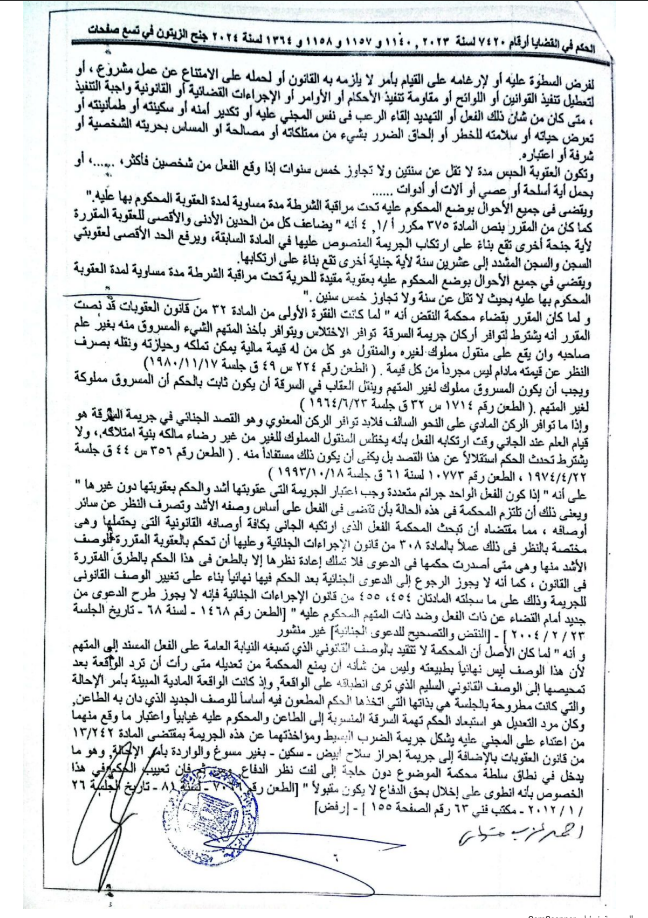 الحكم في القضايا أرقام ٧٤٢٠ لسنة ٢٠٢٣ , ١١٤٠ و ١١٥٧ و ١١٥٨ و ١٣٦٤ لسنة ٢٠٢٤ جنح الزيتون في تسع صفحات
لفرض السطوة عليه أو لإرغامه على القيام بأمر لا يلزمه به القانون أو لحمله على الامتناع عن عمل مشروع ، أو
لتعطيل تنفيذ القوانين أو اللوائح أو مقاومة تنفيذ الأحكام أو الأوامر أو الإجراءات القضائية أو القانونية واجبة التنفيذ
، متى كان من شان ذلك الفعل أو التهديد إلقاء الرعب في نفس المجني عليه أو تكدير أمنه أو سكينته أو طمأنينته أو
تعرض حياته أو سلامته للخطر أو إلحاق الضرر بشيء من ممتلكاته أو مصالحة أو المساس بحريته الشخصية أو
شرفة أو اعتباره.
وتكون العقوبة الحبس مدة لا تقل عن سنتين ولا تجاوز خمس سنوات إذا وقع الفعل من شخصين فأكثر، ......، أو
بحمل أية أسلحة أو عصي أو آلات أو أدوات ......
ويقضى في جميع الأحوال بوضع المحكوم عليه تحت مراقبة الشرطة مدة مساوية لمدة العقوبة المحكوم بها عليه."
كما كان من المقرر بنص المادة ٣٧٥ مكرر أ /١, ٤ أنه " يضاعف كل من الحدين الأدنى والأقصى للعقوبة المقررة
لأية جنحة أخرى تقع بناءً على ارتكاب الجريمة المنصوص عليها في المادة السابقة، ويرفع الحد الأقصى لعقوبتي
السجن والسجن المشدد إلى عشرين سنة لأية جناية أخرى تقع بناءً على ارتكابها.
ويقضي في جميع الأحوال بوضع المحكوم عليه بعقوبة مقيدة للحرية تحت مراقبة الشرطة مدة مساوية لمدة العقوبة
المحكوم بها عليه بحيث لا تقل عن سنة ولا تجاوز خمس سنين ."
و لما كان المقرر بقضاء محكمة النقض أنه " لما كانت الفقرة الأولى من المادة ٣٢ من قانون العقوبات قد نصت
المقرر أنه يشترط لتوافر أركان جريمة السرقة توافر الاختلاس ويتوافر بأخذ المتهم الشيء المسروق منه بغير علم
صاحبه وان يقع على منقول مملوك لغيره والمنقول هو كل من له قيمة مالية يمكن تملكه وحيازته ونقله بصرف
النظر عن قيمته مادام ليس مجرداً من كل قيمة . (الطعن رقم ٢٢٤ س ٤٩ ق جلسة ١٩٨٠/١١/١٧)
ويجب أن يكون المسروق مملوك لغير المتهم وينقل العقاب في السرقة أن يكون ثابت بالحكم أن المسروق مملوكة
لغير المتهم .( الطعن رقم ١٧١٤ س ٣٢ ق جلسة ١٩٦٤/٦/٢٣ )
وإذا ما توافر الركن المادي على النحو السالف فلابد توافر الركن المعنوي وهو القصد الجنائي في جريمة السرقة هو
قيام العلم عند الجاني وقت ارتكابه الفعل بأنه يختلس المنقول المملوك للغير من غير رضاء مالكه بنية امتلاكه.، ولا
يشترط تحدث الحكم استقلالاً عن هذا القصد بل يكفى أن يكون ذلك مستفاداً منه . ( الطعن رقم ٣٥٦ س ٤٤ ق جلسة
١٩٧٤/٤/٢٢ ، الطعن رقم ١٠٧٧٣ لسنة ٦١ ق جلسة ١٩٩٣/١٠/١٨ )
على أنه " إذا كون الفعل الواحد جرائم متعددة وجب اعتبار الجريمة التي عقوبتها أشد والحكم بعقوبتها دون غيرها "
ويعنى ذلك أن تلتزم المحكمة في هذه الحالة بأن تقضى في الفعل على أساس وصفه الأشد وتصرف النظر عن سائر
أوصافه ، مما مقتضاه أن تبحث المحكمة الفعل الذى ارتكبه الجاني بكافة أوصافه القانونية التى يحتملها وهى
مختصة بالنظر فى ذلك عملاً بالمادة ٣٠٨ من قانون الإجراءات الجنائية وعليها أن تحكم بالعقوبة المقررة للوصف
الأشد منها وهى متى أصدرت حكمها فى الدعوى فلا تملك إعادة نظرها إلا بالطعن فى هذا الحكم بالطرق المقررة
فى القانون ، كما أنه لا يجوز الرجوع إلى الدعوى الجنائية بعد الحكم فيها نهائياً بناء على تغيير الوصف القانونى
للجريمة وذلك على ما سجلته المادتان ٤٥٤، ٤٥٥ من قانون الإجراءات الجنائية فإنه لا يجوز طرح الدعوى من
جديد أمام القضاء عن ذات الفعل وضد ذات المتهم المحكوم عليه " [الطعن رقم ١٤٦٨ - لسنة ٦٨ - تاريخ الجلسة
٢٣ / ٢ / ٢٠٠٤ ] - [النقض والتصحيح للدعوى الجنائية] غير منشور
و أنه " لما كان الأصل أن المحكمة لا تتقيد بالوصف القانوني الذي تسبغه النيابة العامة على الفعل المسند إلى المتهم
لأن هذا الوصف ليس نهائياً بطبيعته وليس من شأنه أن يمنع المحكمة من تعديله متى رأت أن ترد الواقعة بعد
تمحيصها إلى الوصف القانوني السليم الذي ترى انطباقه على الواقعة, وإذ كانت الواقعة المادية المبينة بأمر الإحالة
والتي كانت مطروحة بالجلسة هي بذاتها التي اتخذها الحكم المطعون فيه أساساً للوصف الجديد الذي دان به الطاعن,
وكان مرد التعديل هو استبعاد الحكم تهمة السرقة المنسوبة إلى الطاعن والمحكوم عليه غيابياً واعتبار ما وقع منهما
من اعتداء على المجني عليه يشكل جريمة الضرب البسيط ومؤاخذتهما عن هذه الجريمة بمقتضى المادة ١٣/٢٤٢
من قانون العقوبات بالإضافة إلى جريمة إحراز سلاح أبيض - سكين - بغير مسوغ والواردة بأمر الإحالة, وهو ما
يدخل في نطاق سلطة محكمة الموضوع دون حاجة إلى لفت نظر الدفاع فإن تعييب الحكم في هذا
الخصوص بأنه انطوى على إخلال بحق الدفاع لا يكون مقبولاً " [الطعن رقم - لسنة ٨١ - تاريخ الجلسة ٢٦
/ ١ / ٢٠١٢ - مكتب فني ٦٣ رقم الصفحة ١٥٥ ] - [رفض]
٦